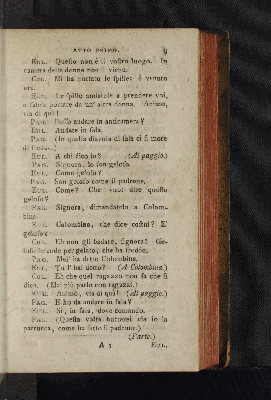 ATTO PRIMO. 9
EUL. Questo non è il vostro luogo. In
camera delle donne non si viene.
COL. Mi ha portato le spille: è venuto
ora.
EUL. Le spille andatele a prendere voi,
o fatele portare da un' altra donna. Animo,
via di quà!
PAG. Posso andare in anticamera?
EUL. Andate in sala.
PAG. (In quella diavola di sala ci si more
di freddo.)
EUL. A chi dico io? (Al paggio.)
PAG. Signora, io son geloso.
EUL. Come geloso?
PAG. Son geloso come il padrone.
EUL. Come? Che vuol dire questo
geloso?
PAG. Signora, dimandatelo a Colom-
bina.
EUL. Colombina, che dice costui? E'
geloso?
COL. Eh non gli badate, signora! Ge-
loso intende per gelato, che ha freddo.
PAG. Me l' ha detto Colombina.
EUL. Tu l' hai detto? (A Colombina.)
COL. Eh che quel ragazzo non sa che si
dica. (Mai più parlo con ragazzi.)
EUL. Animo, via di quà! (Al paggio.)
PAG. E ho da andare in sala?
EUL. Sì, in sala, dove comando.
PAG. (Questa volta butterei via io la
parrucca, come ha fatto il padrone.)
(Parte.)
A 5 EUL.